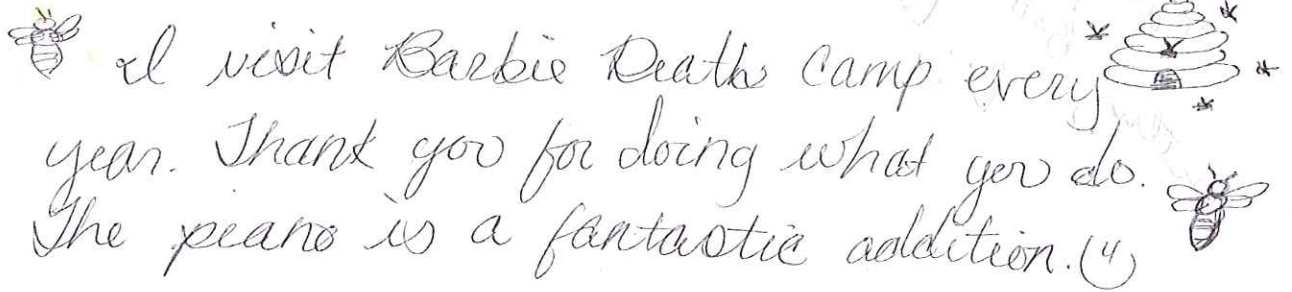 I visit Barbie Death Camp every
year. Thank you for doing what you do.
The piano is a fantastic addition. (4)